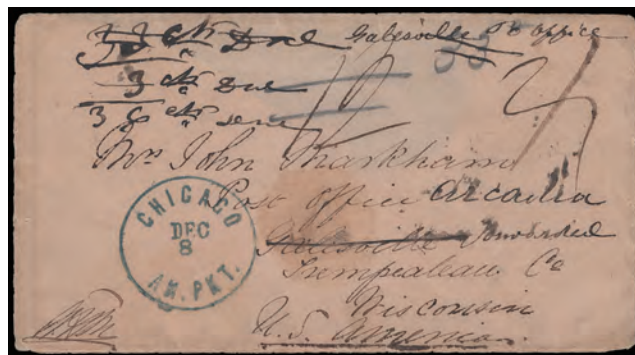 33 cts Due Galesville Post office
3 cts Due
36 cts Due
Mr. John Markham
Post office Arcadia
Galesville Forwarded
Trempealeau Co
Wisconsin
U.S. America.
CHICAGO
DEC
8
AM. PKT.